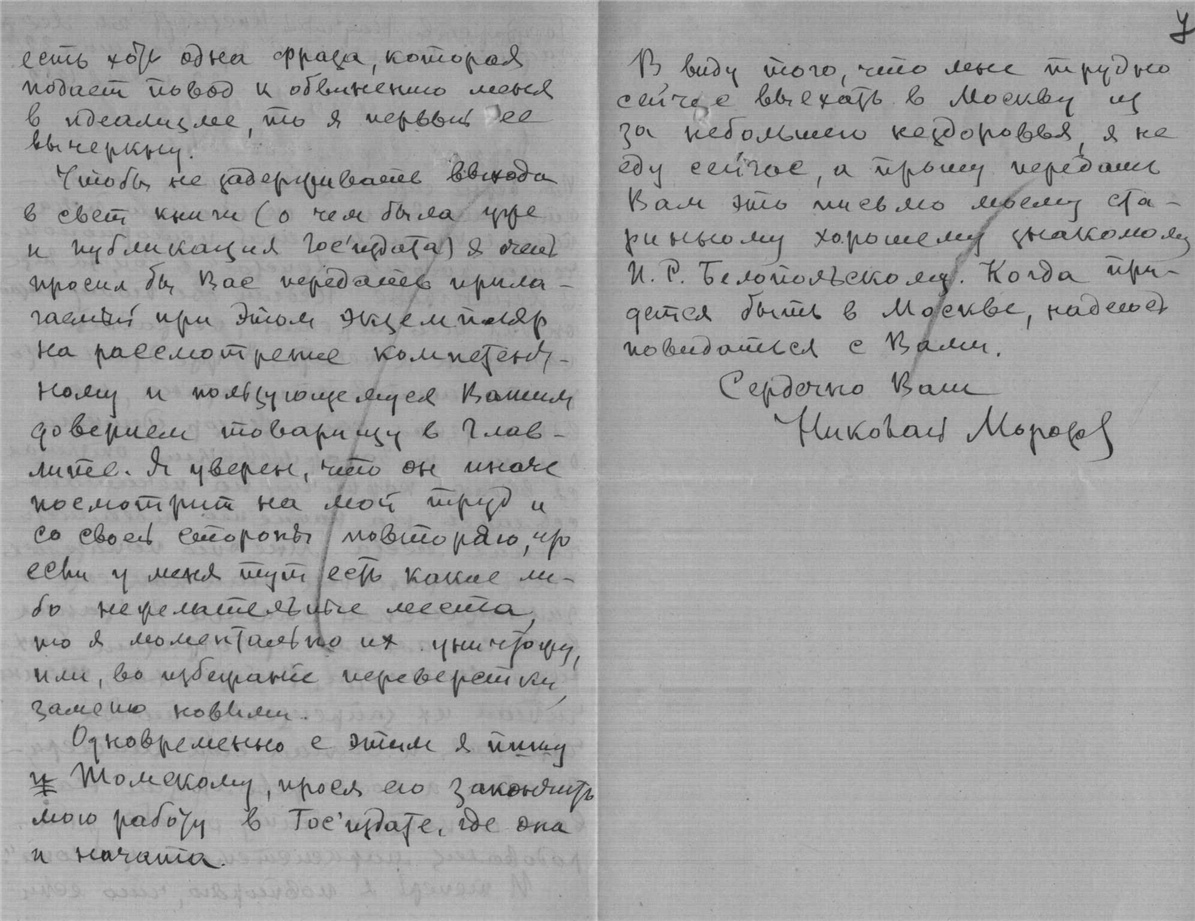 есть хоть одна фраза, которая
подает повод к обвинению меня
в идеализме, то я первый ее
вычеркну.
Чтобы не задерживать выхода
в свет книги (о чем была уже
и публикация Гос'издата) я очень
просил бы Вас передать прила-
гаемый при этом экземпляр
на рассмотрение компетент-
ному и пользующемуся Вашим
доверием товарищу в Глав-
лите. Я уверен, что он иначе
посмотрит на мой труд и
со своей стороны повторяю, что
если у меня тут есть какие ли-
бо нежелательные места,
то я моментально их уничтожу,
или, во избежание переверстки,
заменю новыми.
Одновременно с этим я пишу
и Томскому, прося его закончить
мою работу в Гос'издате, где она
и начата.
У
В виду того, что мне трудно
сейчас выехать в Москву из
за небольшого нездоровья, я не
еду сейчас, а прошу передать
Вам это письмо моему ста-
ринному хорошему знакомому
И. Р. Белопольскому. Когда при-
дется быть в Москве, надеюсь
повидаться с Вами.
Сердечно Ваш
Николай Морозов